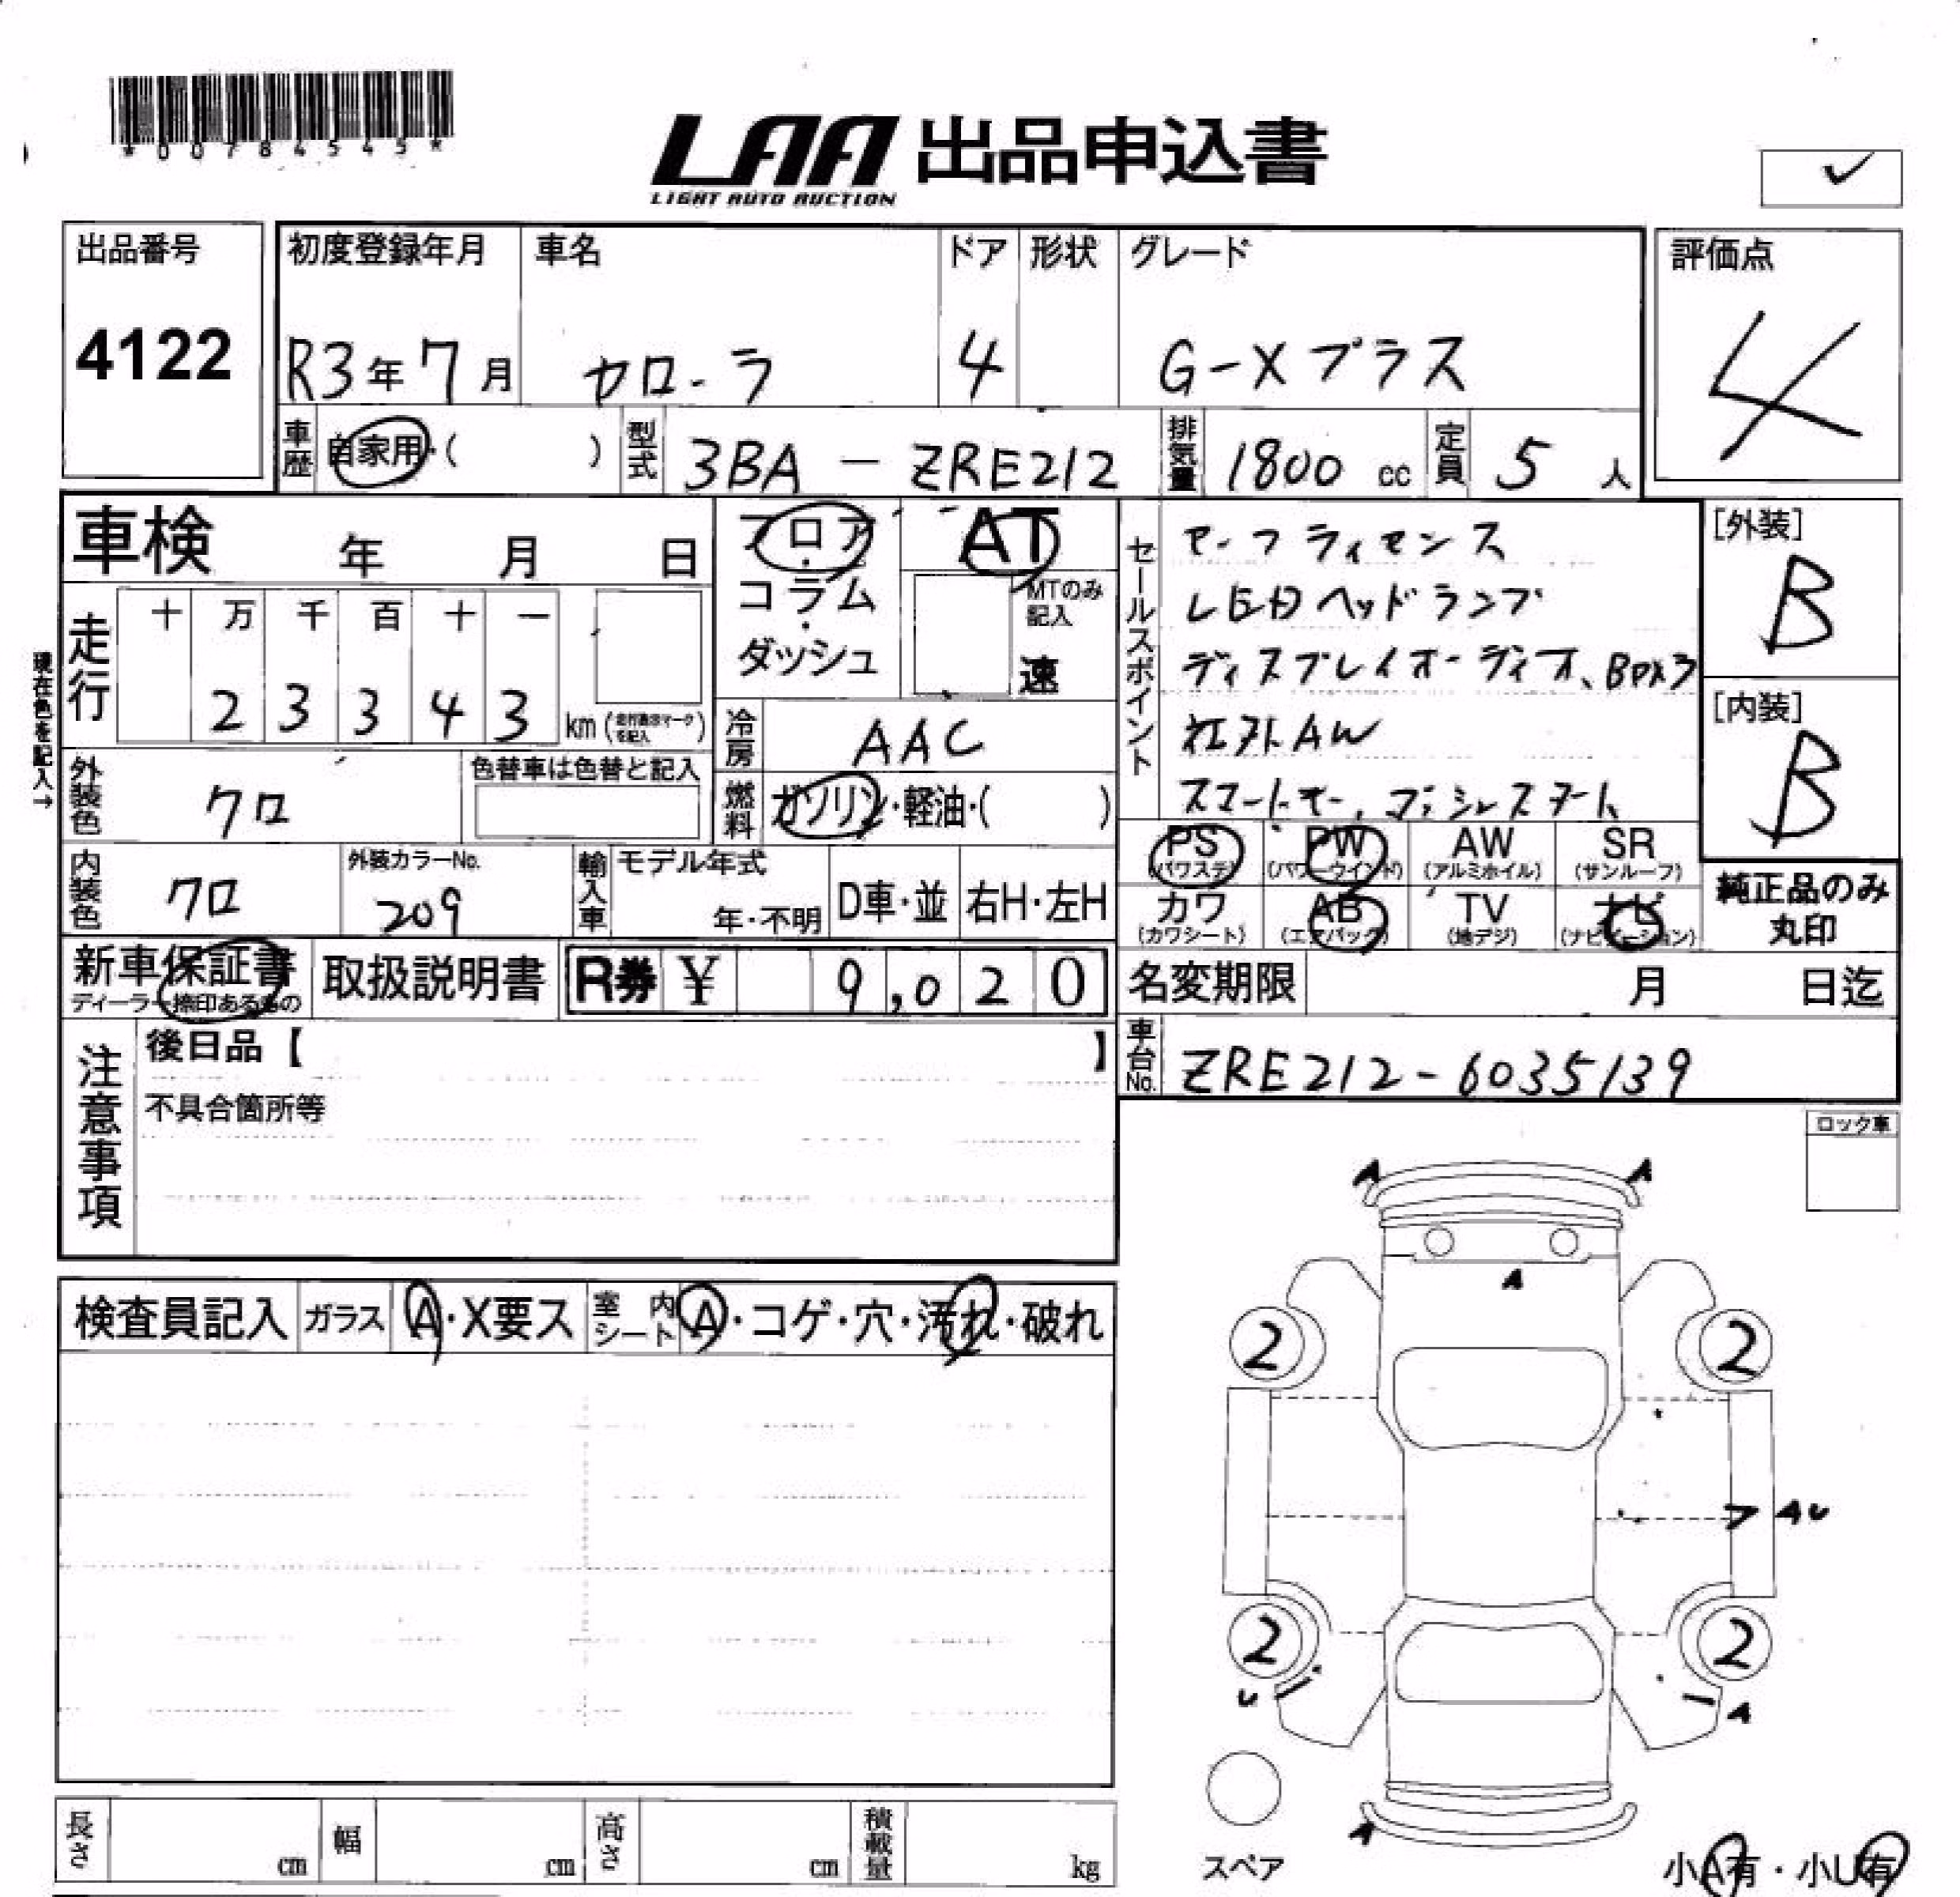 *00784545*
LAA 出品申込書
LIGHT AUTO AUCTION
出品番号 初度登録年月 車名 ドア 形状 グレード 評価点
4122 R3年7月 カローラ 4 G-Xプラス 4
車歴 自家用・( ) 型式 3BA-ZRE212 排気量 1800 cc 定員 5 人
車検 年 月 日
フロア・コラム・ダッシュ
AT
MTのみ記入
速
現在色を記入→
走行 十 万 千 百 十 一
2 3 3 4 3 km(走行表示マークを記入)
冷房 AAC
燃料 ガソリン・軽油・( )
外装色 クロ 色替車は色替と記入
内装色 クロ 外装カラーNo. 209
輸入車 モデル年式 年・不明 D車・並 右H・左H
セールスポイント
セーフティセンス
LEDヘッドランプ
ディスプレイオーディオ、
社外AW
スマートキー、プッシュスタート
[外装]
B
[内装]
B
PS PW AW SR
(パワステ) (パワーウインド) (アルミホイル) (サンルーフ)
カワ AB TV ナビ
(カワシート) (エアバック) (地デジ) (ナビゲーション)
純正品のみ
丸印
新車保証書 取扱説明書 R券 ¥ 9,020
ディーラー捺印あるもの
名変期限 月 日迄
車台No. ZRE212-6035139
注意事項
後日品【 】
不具合箇所等
ロック車
検査員記入 ガラス A・X要ス 室内シート A・コゲ・穴・汚れ・破れ
A A
A
2 2
AU
2 2
U A
A
スペア
小A有・小U有
長さ cm 幅 cm 高さ cm 積載量 kg